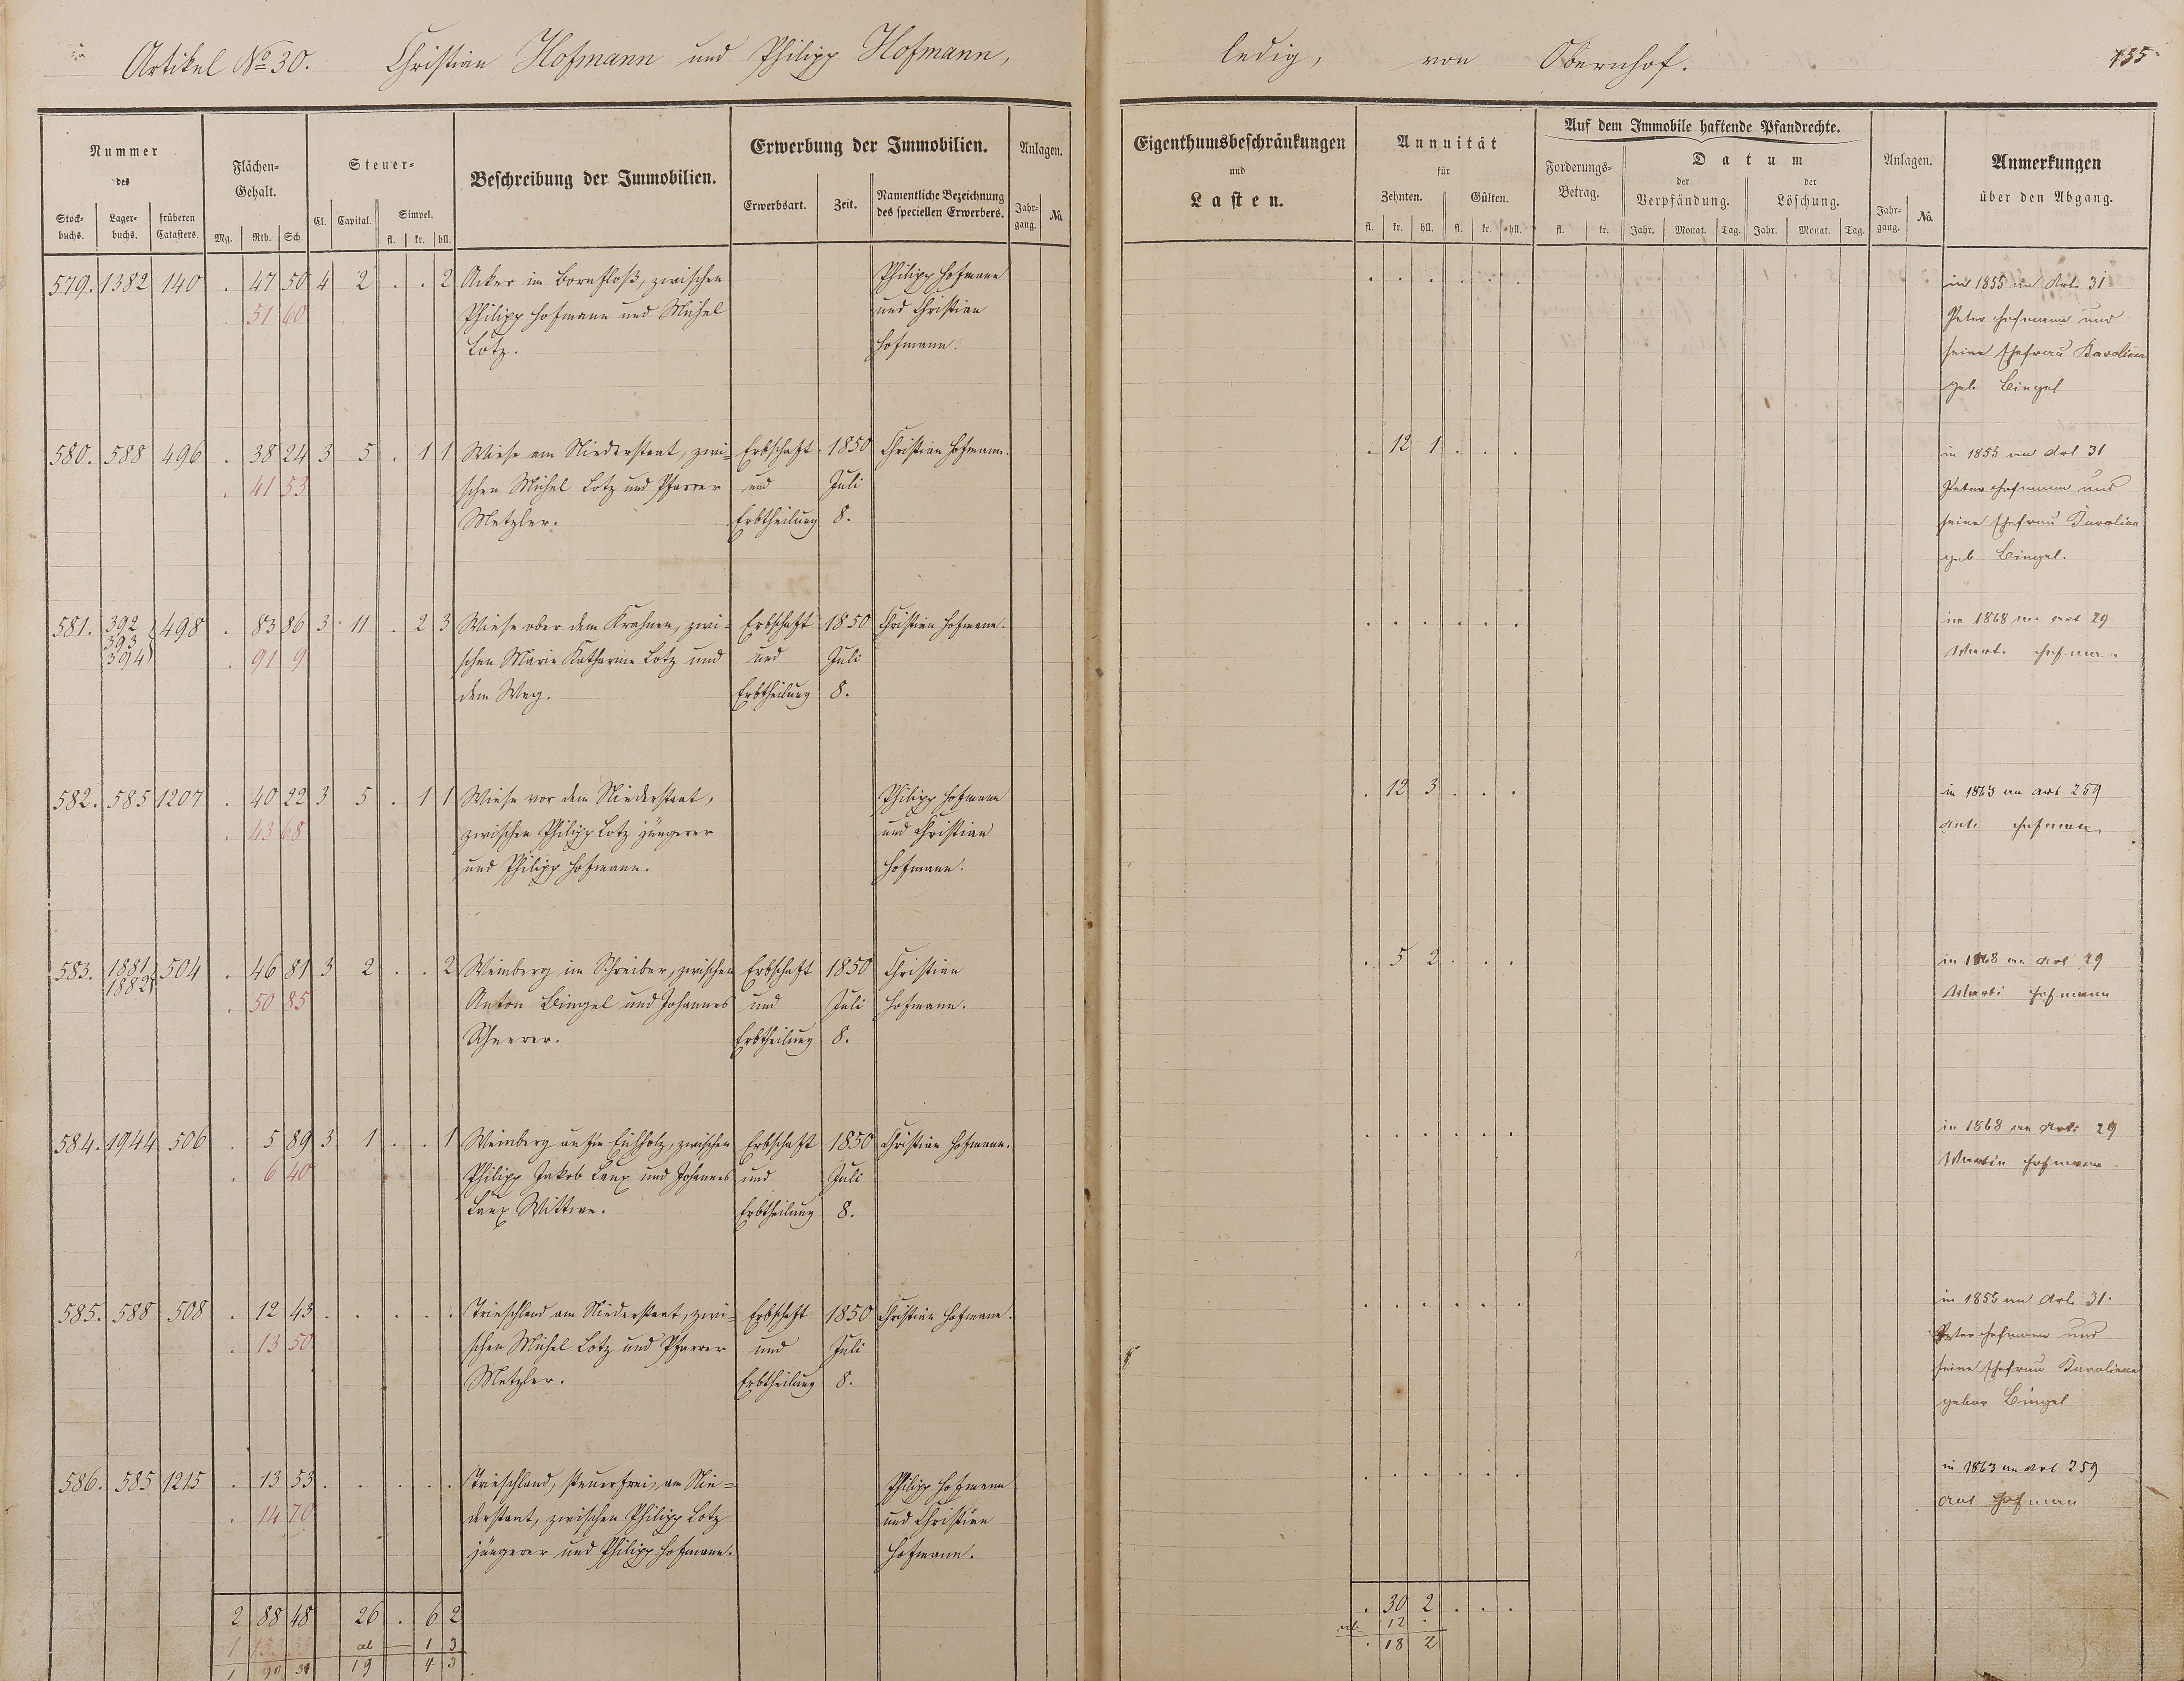 Artikel No 30. Christian Hofmann und Philipp Hofmann, ledig, von Obernhof. 155
Nummer des
Stock-buchs. Lager-buchs. früheren Catasters.
Flächen-Gehalt.
Mg. Rth. Sch.
Steuer-
Cl. Capital. Simpel.
fl. kr. hll.
Beschreibung der Immobilien.
Erwerbung der Immobilien.
Erwerbsart. Zeit. Namentliche Bezeichnung des speciellen Erwerbers.
Anlagen.
Jahr-gang. No.
Eigenthumsbeschränkungen
und
Lasten.
Annuität
für
Zehnten. Gülten.
fl. kr. hll. fl. kr. hll.
Auf dem Immobile haftende Pfandrechte.
Forderungs-Betrag.
fl. kr.
Datum
der Verpfändung. der Löschung.
Jahr. Monat. Tag. Jahr. Monat. Tag.
Anlagen.
Jahr-gang. No.
Anmerkungen
über den Abgang.
579. 1382 140 . 47 50 4 2 . . 2 Acker im Bornfloß, zwischen Philipp Hofmann . . . . . . in 1855 an Art. 31
. 51 60 Philipp Hofmann und Michel und Christian Peter Hofmann und
Lotz. Hofmann. seine Ehefrau Karolina
geb. Bingel
580. 588 496 . 38 24 3 5 . 1 1 Wiese am Niederstaat, zwi- Erbschaft 1850 Christian Hofmann. . 12 1 . . . in 1855 an Art 31
. 41 53 schen Michel Lotz und Pfarrer und Juli Peter Hofmann und
Metzler. Erbtheilung 8. seine Ehefrau Karolina
geb Bingel.
581. 392 498 . 83 86 3 11 . 2 3 Wiese ober dem Krahnen, zwi- Erbschaft 1850 Christian Hofmann. . . . . . . in 1868 an Art 29
393
394 . 91 9 schen Marie Katharine Lotz und und Juli
dem Weg. Erbtheilung 8.
582. 585 1207 . 40 22 3 5 . 1 1 Wiese vor dem Niederstaat, Philipp Hofmann . 12 3 . . . in 1863 an Art 259
. 43 68 zwischen Philipp Lotz jüngerer und Christian
und Philipp Hofmann. Hofmann.
583. 1881 504 . 46 81 3 2 . . 2 Weinberg im Schreiber, zwischen Erbschaft 1850 Christian . 5 2 . . . in 1868 an Art 29
1882 . 50 85 Anton Bingel und Johannes und Juli Hofmann. Marti Hofmann
Scheerer. Erbtheilung 8.
584. 1944 506 . 5 89 3 1 . . 1 Weinberg an der Eichholz, zwischen Erbschaft 1850 Christian Hofmann. . . . . . . in 1868 an Art 29
. 6 40 Philipp Jakob Laux und Johannes und Juli Martin Hofmann
Laux Wittwe. Erbtheilung 8.
585. 588 508 . 12 43 . . . . . Trieschland am Niederstaat, zwi- Erbschaft 1850 Christian Hofmann. . . . . . . in 1855 an Art. 31.
. 13 50 schen Michel Lotz und Pfarrer und Juli Peter Hofmann und
Metzler. Erbtheilung 8. seine Ehefrau Karolina
gebor Bingel
586. 585 1215 . 13 53 . . . . . Trieschland, steuerfrei, am Nie- Philipp Hofmann . . . . . . in 1863 an Art 259
. 14 70 derstaat, zwischen Philipp Lotz und Christian
jüngerer und Philipp Hofmann. Hofmann.
2 88 48 26 . 6 2 . 30 2 . . .
ab 1 3 ab. 12
1 90 39 19 4 3 . 18 2